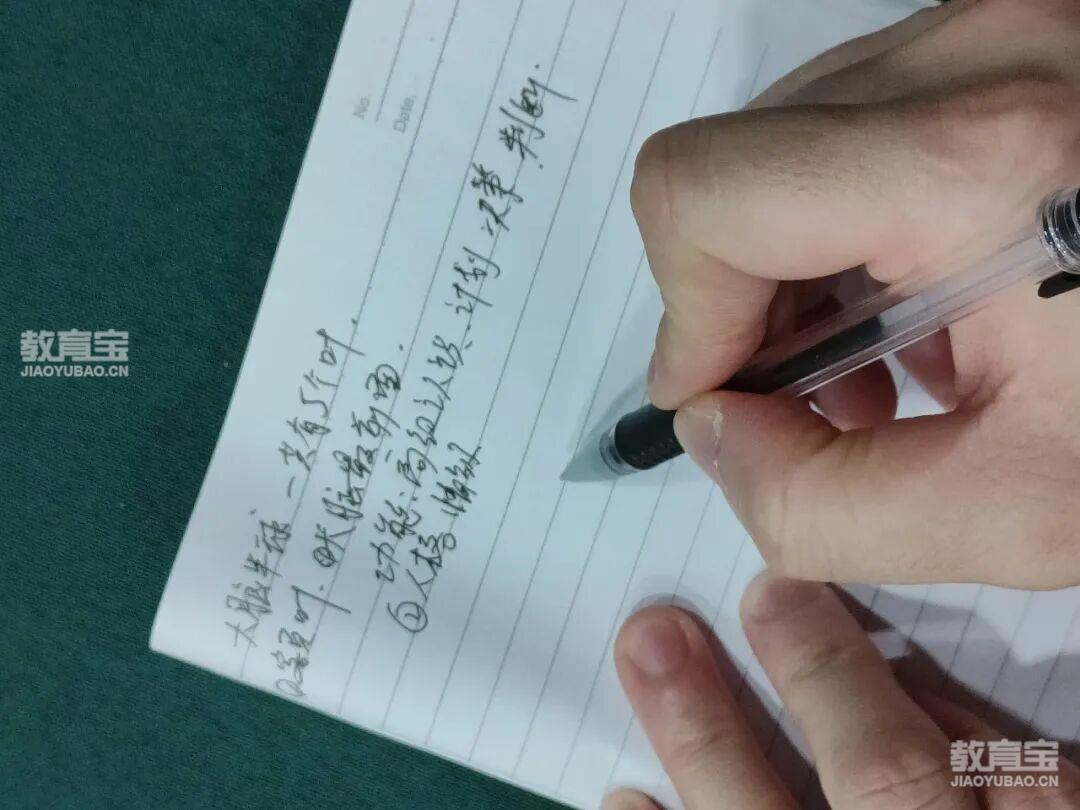 No.
Date.
大脑半球一共有5个叶.
①额叶.:大脑最前面.
功能:高级认识、计划决策.判断.
②人格情绪
教育宝
JIAOYUBAO.CN
教育宝
JIAOYUBAO.CN